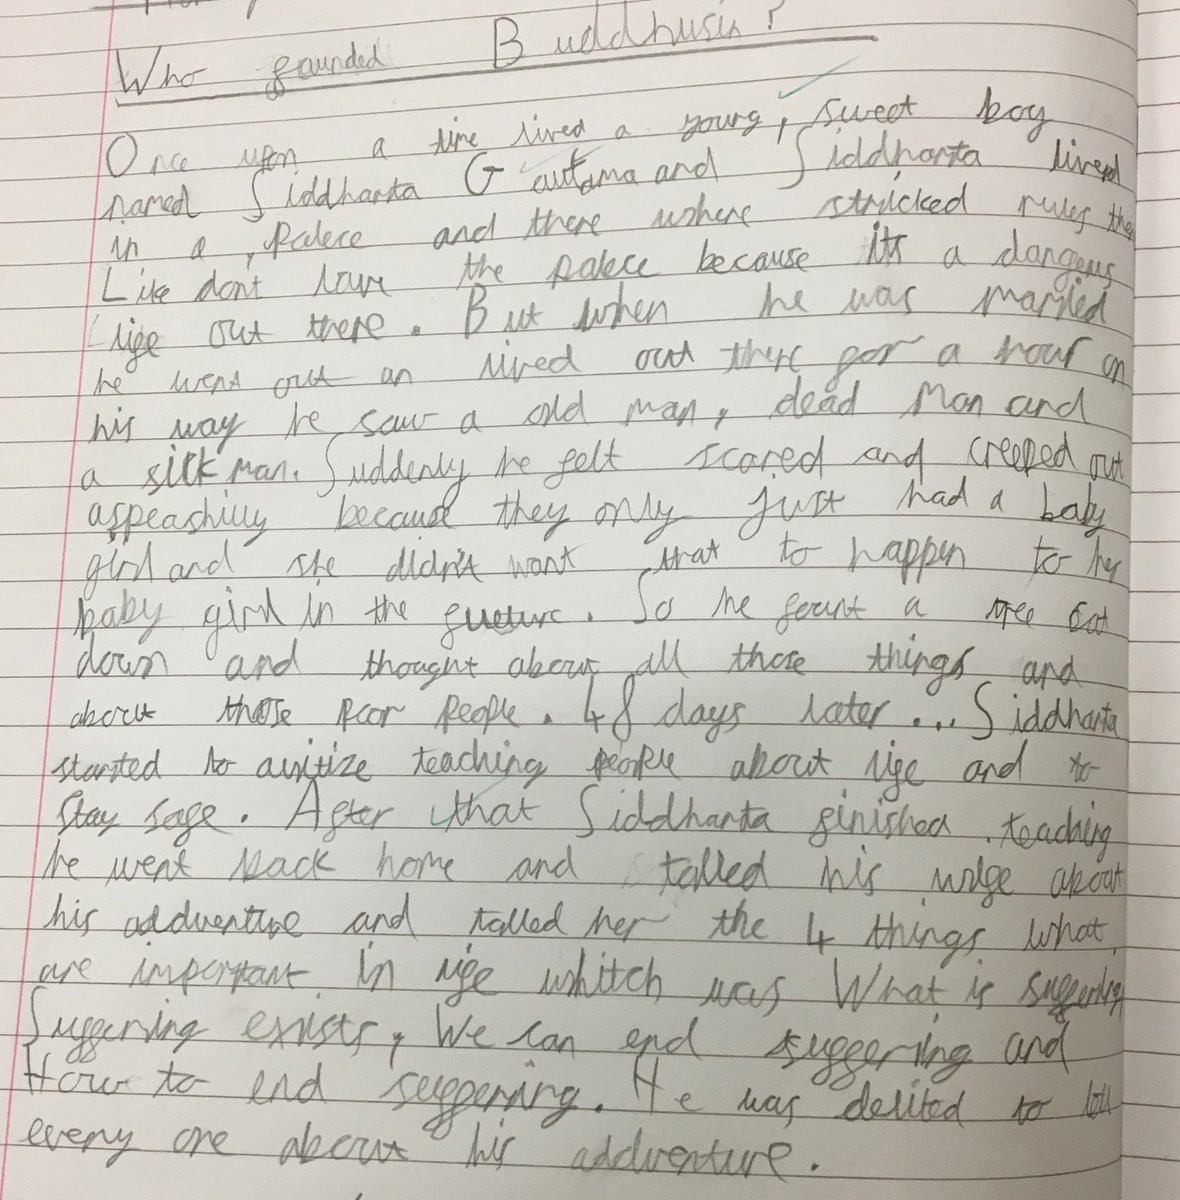 Who founded Buddhusim?
Once upon a time lived a young, sweet boy
named Siddharta Gautama and Siddharta lived
in a palece and there where stricked rules
Like dont leave the palece because its a dangous
life out there. But when he was married
he went out an lived out there for a hour on
his way he saw a old man, dead man and
a sick man. Suddenly he felt scared and creeped out
aspeashilly because they only just had a baby
girl and she didn't want that to happen to her
baby girl in the fueture. So he fount a tree sat
down and thought about all those things and
about those poor people. 48 days later ... Siddharta
started to teaching people about life and to
stay safe. After that Siddharta finished teaching
he went back home and talled his wife about
his addventure and talled her the 4 things what
are important in life whitch was What is suffering
Suffering exists, We can end suffering and
How to end suffering. He was delited to tell
every one about his addventure.